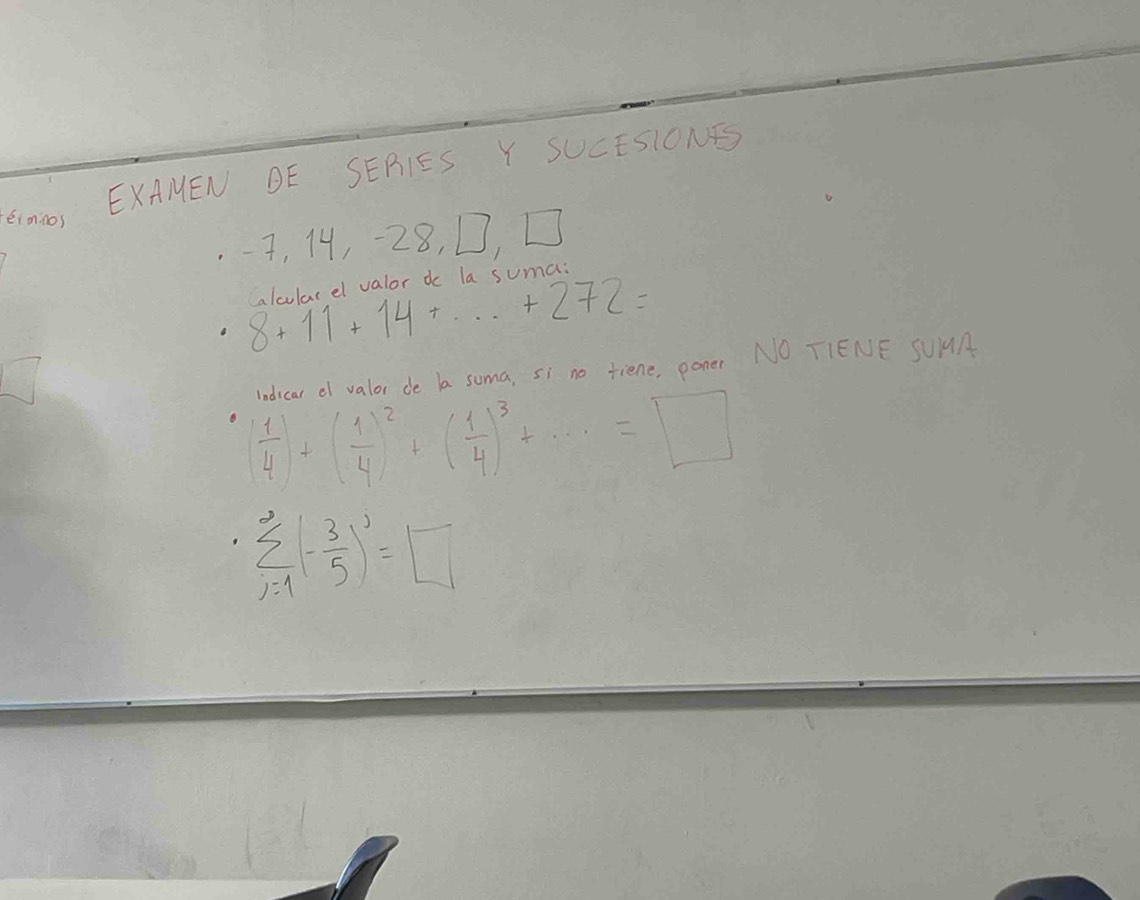 EXAMEN DE SERIES Y SUCESIONES
términos
. -7, 14, -28, □, □
Calcular el valor de la suma:
• 8 + 11 + 14 + ... + 272 =
Indicar el valor de la suma, si no tiene, poner NO TIENE SUMA
• (1/4) + (1/4)^2 + (1/4)^3 + ... = □
. ∑_{j=1}^{∞} (-3/5)^j = □